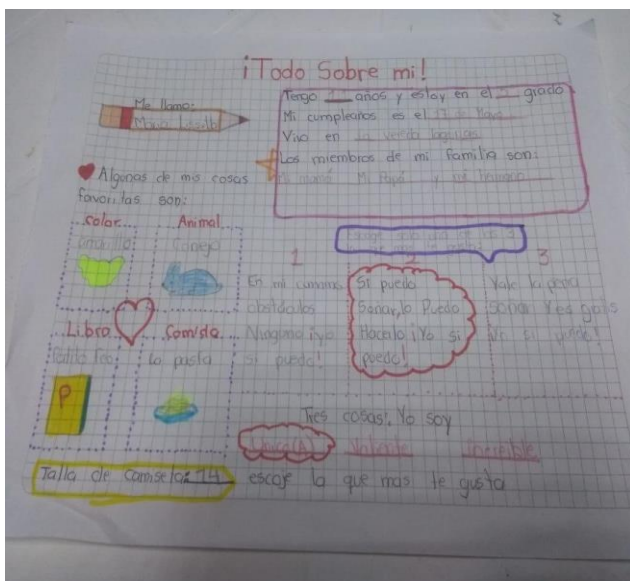 ¡Todo Sobre mi!
Me llamo:
Maria
Tengo años y estoy en el grado
Mi cumpleaños es el 17 de Mayo
Vivo en la
Los miembros de mi familia son:
Mi mamá Mi Papá y mi hermano
Algunas de mis cosas
favoritas son:
Color Animal
amarillo Conejo
Libro Comida
Patito Feo La pasta
1 2 3
En mi camino
obstáculos
Ninguno ¡yo
si puedo!
Si puedo
Sonar, lo Puedo
Hacerlo ¡Yo si
puedo!
Vale la pena
Sonar Y es gratis
Yo si puedo!
Tres cosas: Yo soy
Unico(A) Valiente increible
Talla de camiseta: 14 escoje la que mas te gusta